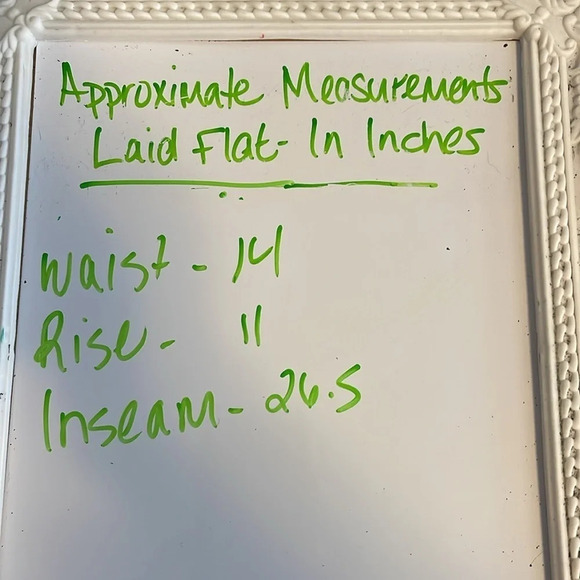 Approximate Measurements
Laid Flat- In Inches
Waist - 14
Rise - 11
Inseam - 26.5